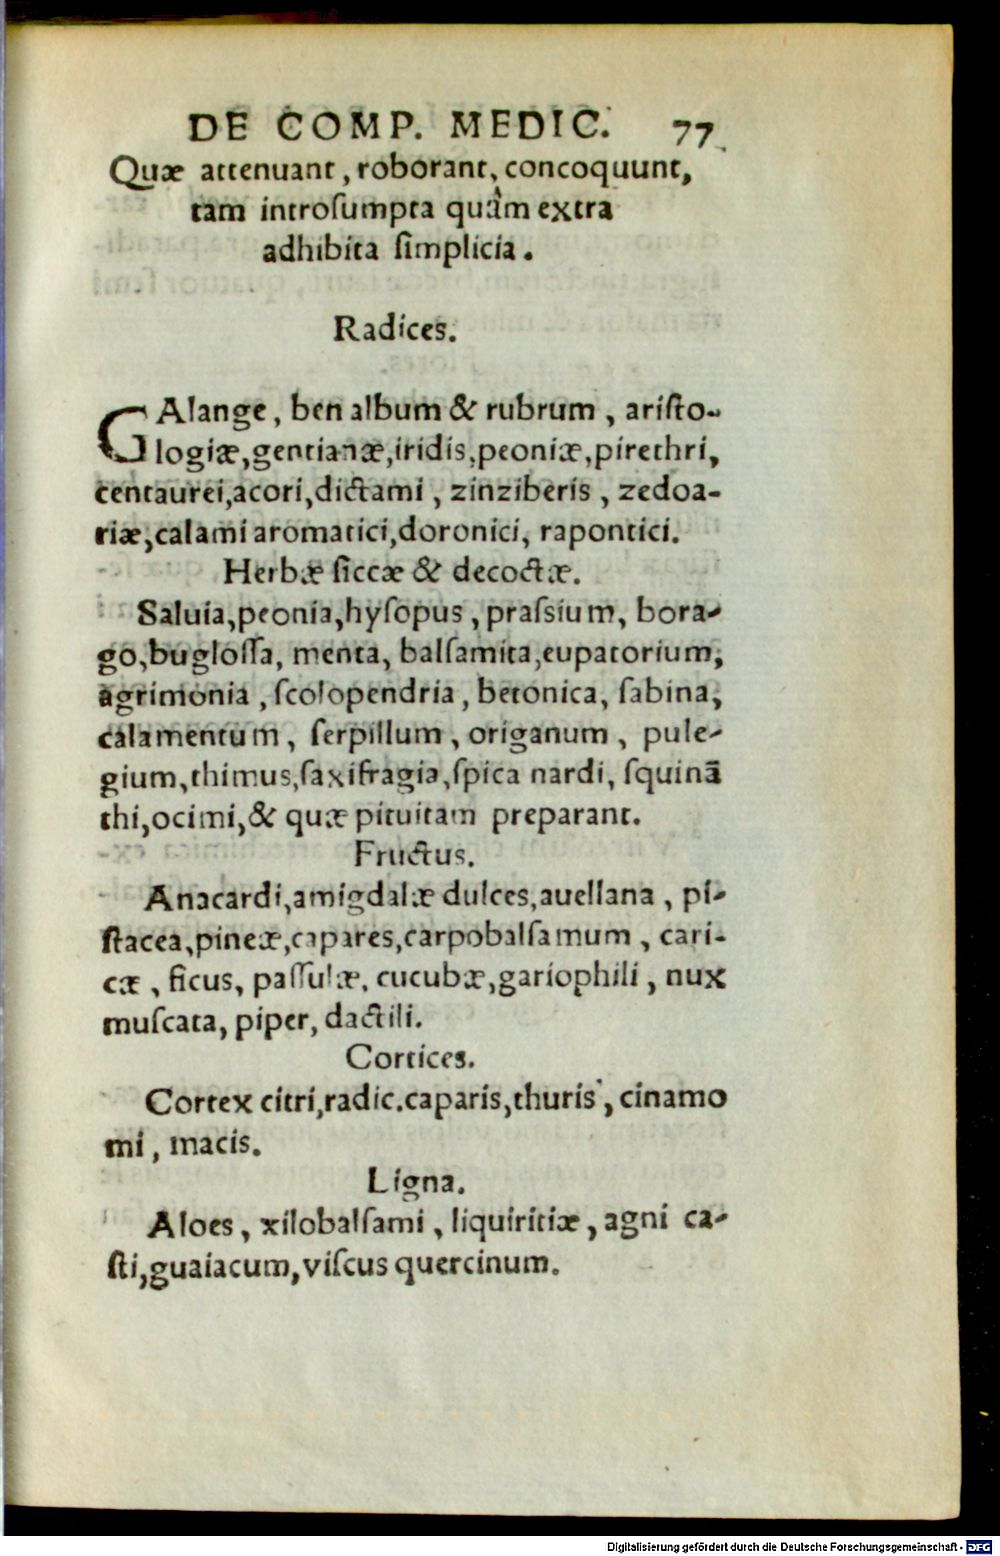 DE COMP. MEDIC. 77
Quæ attenuant, roborant, concoquunt,
tam introſumpta quàm extra
adhibita ſimplicia.
Radices.
GAlange, ben album & rubrum, ariſto-
logiæ, gentianæ, iridis, peoniæ, pirethri,
centaurei, acori, dictami, zinziberis, zedoa-
riæ, calami aromatici, doronici, rapontici.
Herbæ ſiccæ & decoctæ.
Saluia, peonia, hyſopus, praſsium, bora-
go, bugloſſa, menta, balſamita, eupatorium,
agrimonia, ſcolopendria, betonica, ſabina,
calamentum, ſerpillum, origanum, pule-
gium, thimus, ſaxifragia, ſpica nardi, ſquinā
thi, ocimi, & quæ pituitam preparant.
Fructus.
Anacardi, amigdalæ dulces, auellana, pi-
ſtacea, pineæ, capares, carpobalſamum, cari-
cæ, ficus, paſſulæ, cucubæ, gariophili, nux
muſcata, piper, dactili.
Cortices.
Cortex citri, radic. caparis, thuris, cinamo
mi, macis.
Ligna.
Aloes, xilobalſami, liquiritiæ, agni ca-
ſti, guaiacum, viſcus quercinum.
Digitalisierung gefördert durch die Deutsche Forschungsgemeinschaft - DFG